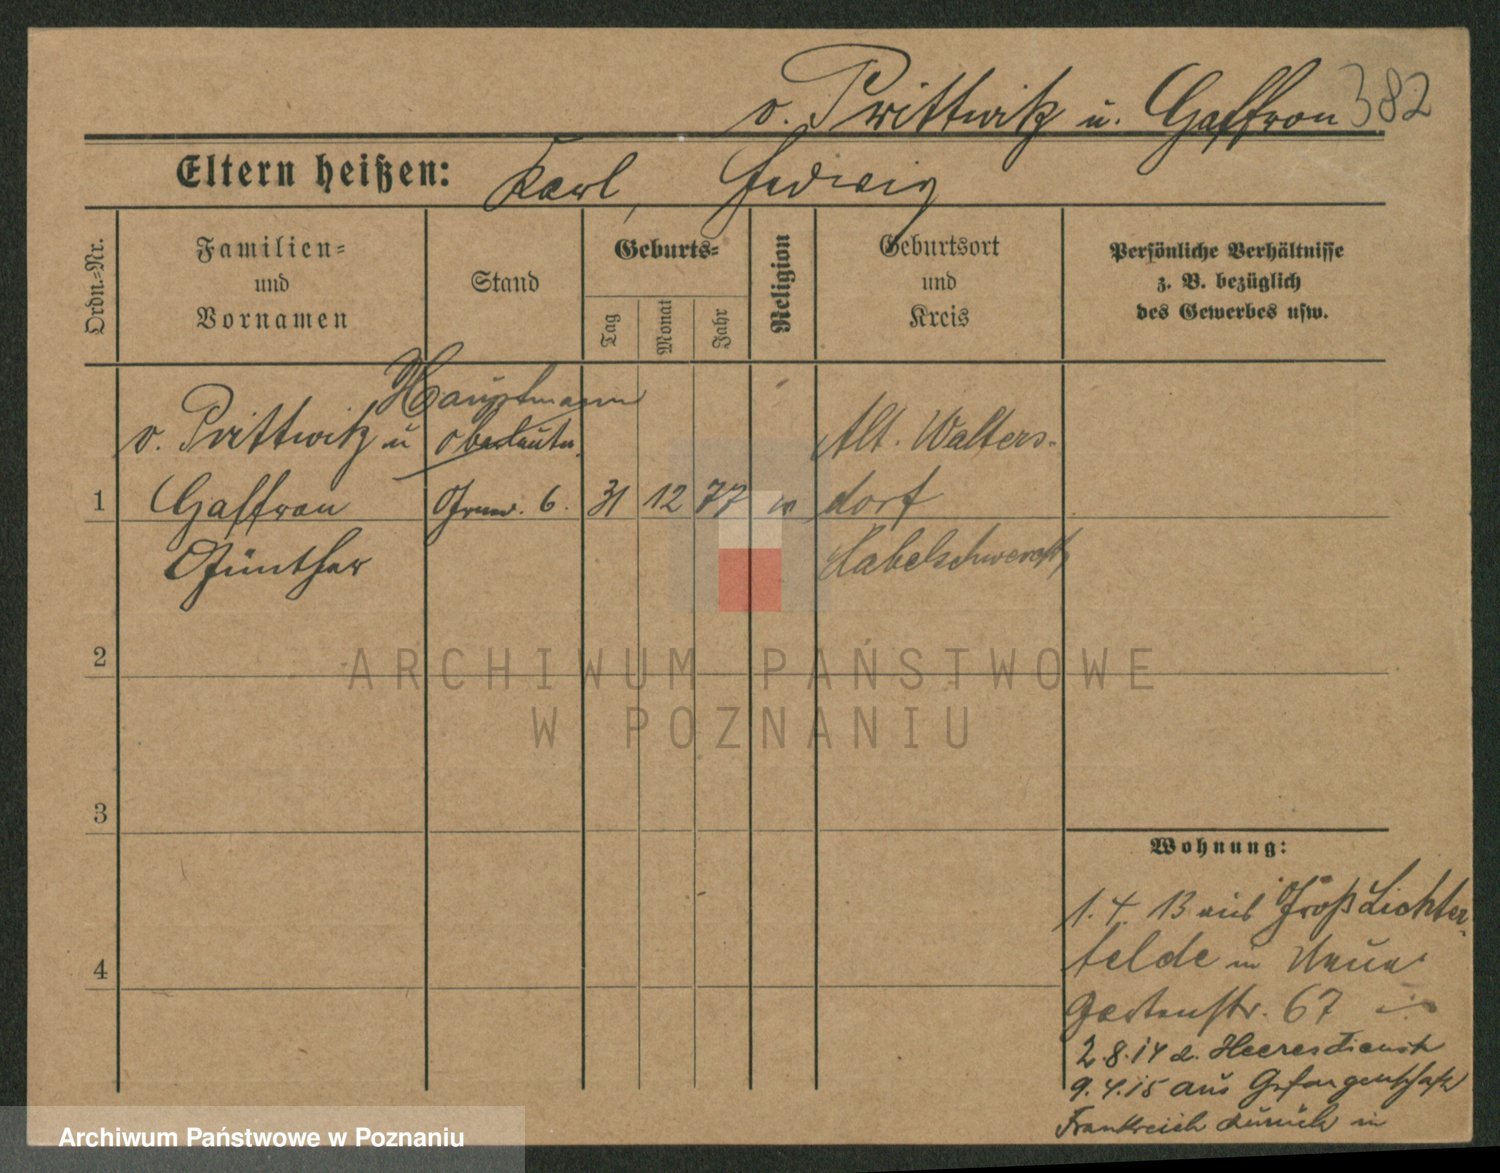 v. Prittwitz u. Gaffron 382
Eltern heißen: Karl, Hedwig
Ordn.=Nr.
Familien=
und
Vornamen
Stand
Geburts=
Tag
Monat
Jahr
Religion
Geburtsort
und
Kreis
Persönliche Verhältnisse
z. B. bezüglich
des Gewerbes usw.
Hauptmann
v. Prittwitz u Oberleutn. Alt. Walters-
1 Gaffron 6. 31 12 77 dorf
Günther Habelschwerdt
2
3
4
Wohnung:
1. 4. 13 aus Groß Lichter-
felde in Neue
Gartenstr. 67
2.8.14 z. Heeresdienst
9.4.15 aus Gefangenschaft
Frankreich zurück in
ARCHIWUM PAŃSTWOWE
W POZNANIU
Archiwum Państwowe w Poznaniu